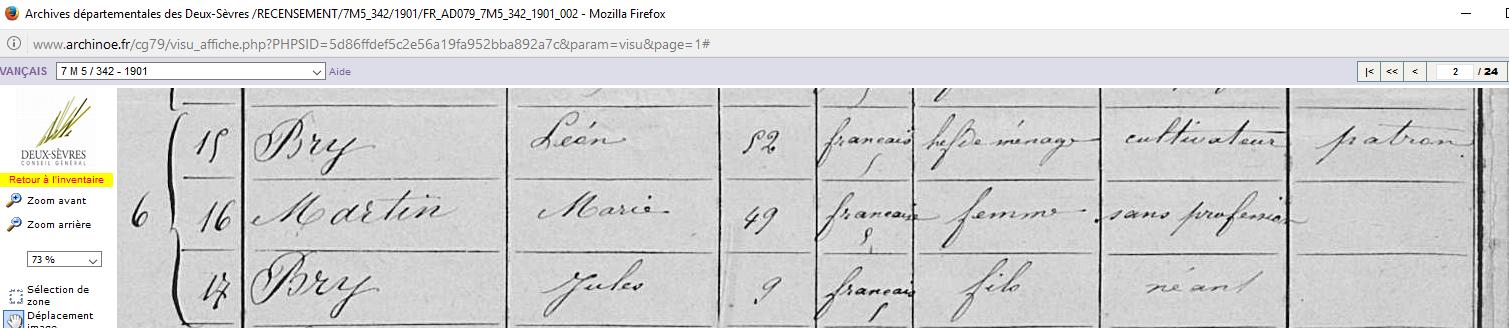 Archives départementales des Deux-Sèvres /RECENSEMENT/7M5_342/1901/FR_AD079_7M5_342_1901_002 - Mozilla Firefox
www.archinoe.fr/cg79/visu_affiche.php?PHPSID=5d86ffdef5c2e56a19fa952bba892a7c&param=visu&page=1#
VANÇAIS 7 M 5 / 342 - 1901 Aide |< << < 2 / 24
DEUX-SÈVRES
CONSEIL GÉNÉRAL
Retour à l'inventaire
Zoom avant
Zoom arrière
73 %
Sélection de
zone
Déplacement
image
15 Bry Léon 52 français chef de ménage cultivateur patron
6 16 Martin Marie 49 française femme sans profession
17 Bry Jules 9 français fils néant